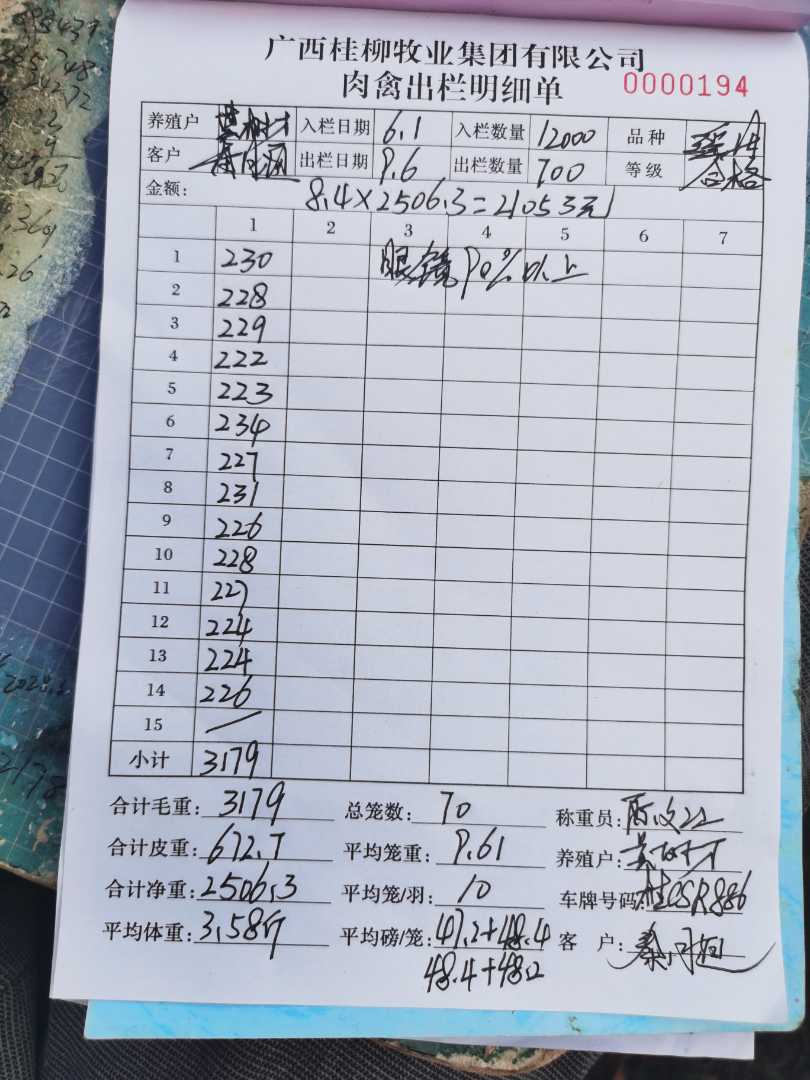 广西桂柳牧业集团有限公司
肉禽出栏明细单 0000194
养殖户 入栏日期 6.1 入栏数量 12000 品种
客户 出栏日期 9.6 出栏数量 700 等级 合格
金额: 8.4×2506.3=21053元
1 2 3 4 5 6 7
1 230 眼镜90%以上
2 228
3 229
4 222
5 223
6 234
7 227
8 231
9 226
10 228
11 227
12 224
13 224
14 226
15 /
小计 3179
合计毛重: 3179 总笼数: 70 称重员:
合计皮重: 672.7 平均笼重: 9.61 养殖户:
合计净重: 2506.3 平均笼/羽: 10 车牌号码: 桂CSR886
平均体重: 3.58斤 平均磅/笼: 47.2+48.4 客户:
48.4+48.2